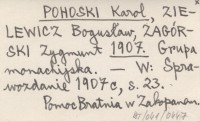 POHOSKI Karol, ZIE-
LEWICZ Bogusław, ZAGÓR-
SKI Zygmunt 1907. Grupa
monachijska. — W: Spra-
wozdanie 1907c, s. 23.
Pomoc Bratnia w Zakopanem.